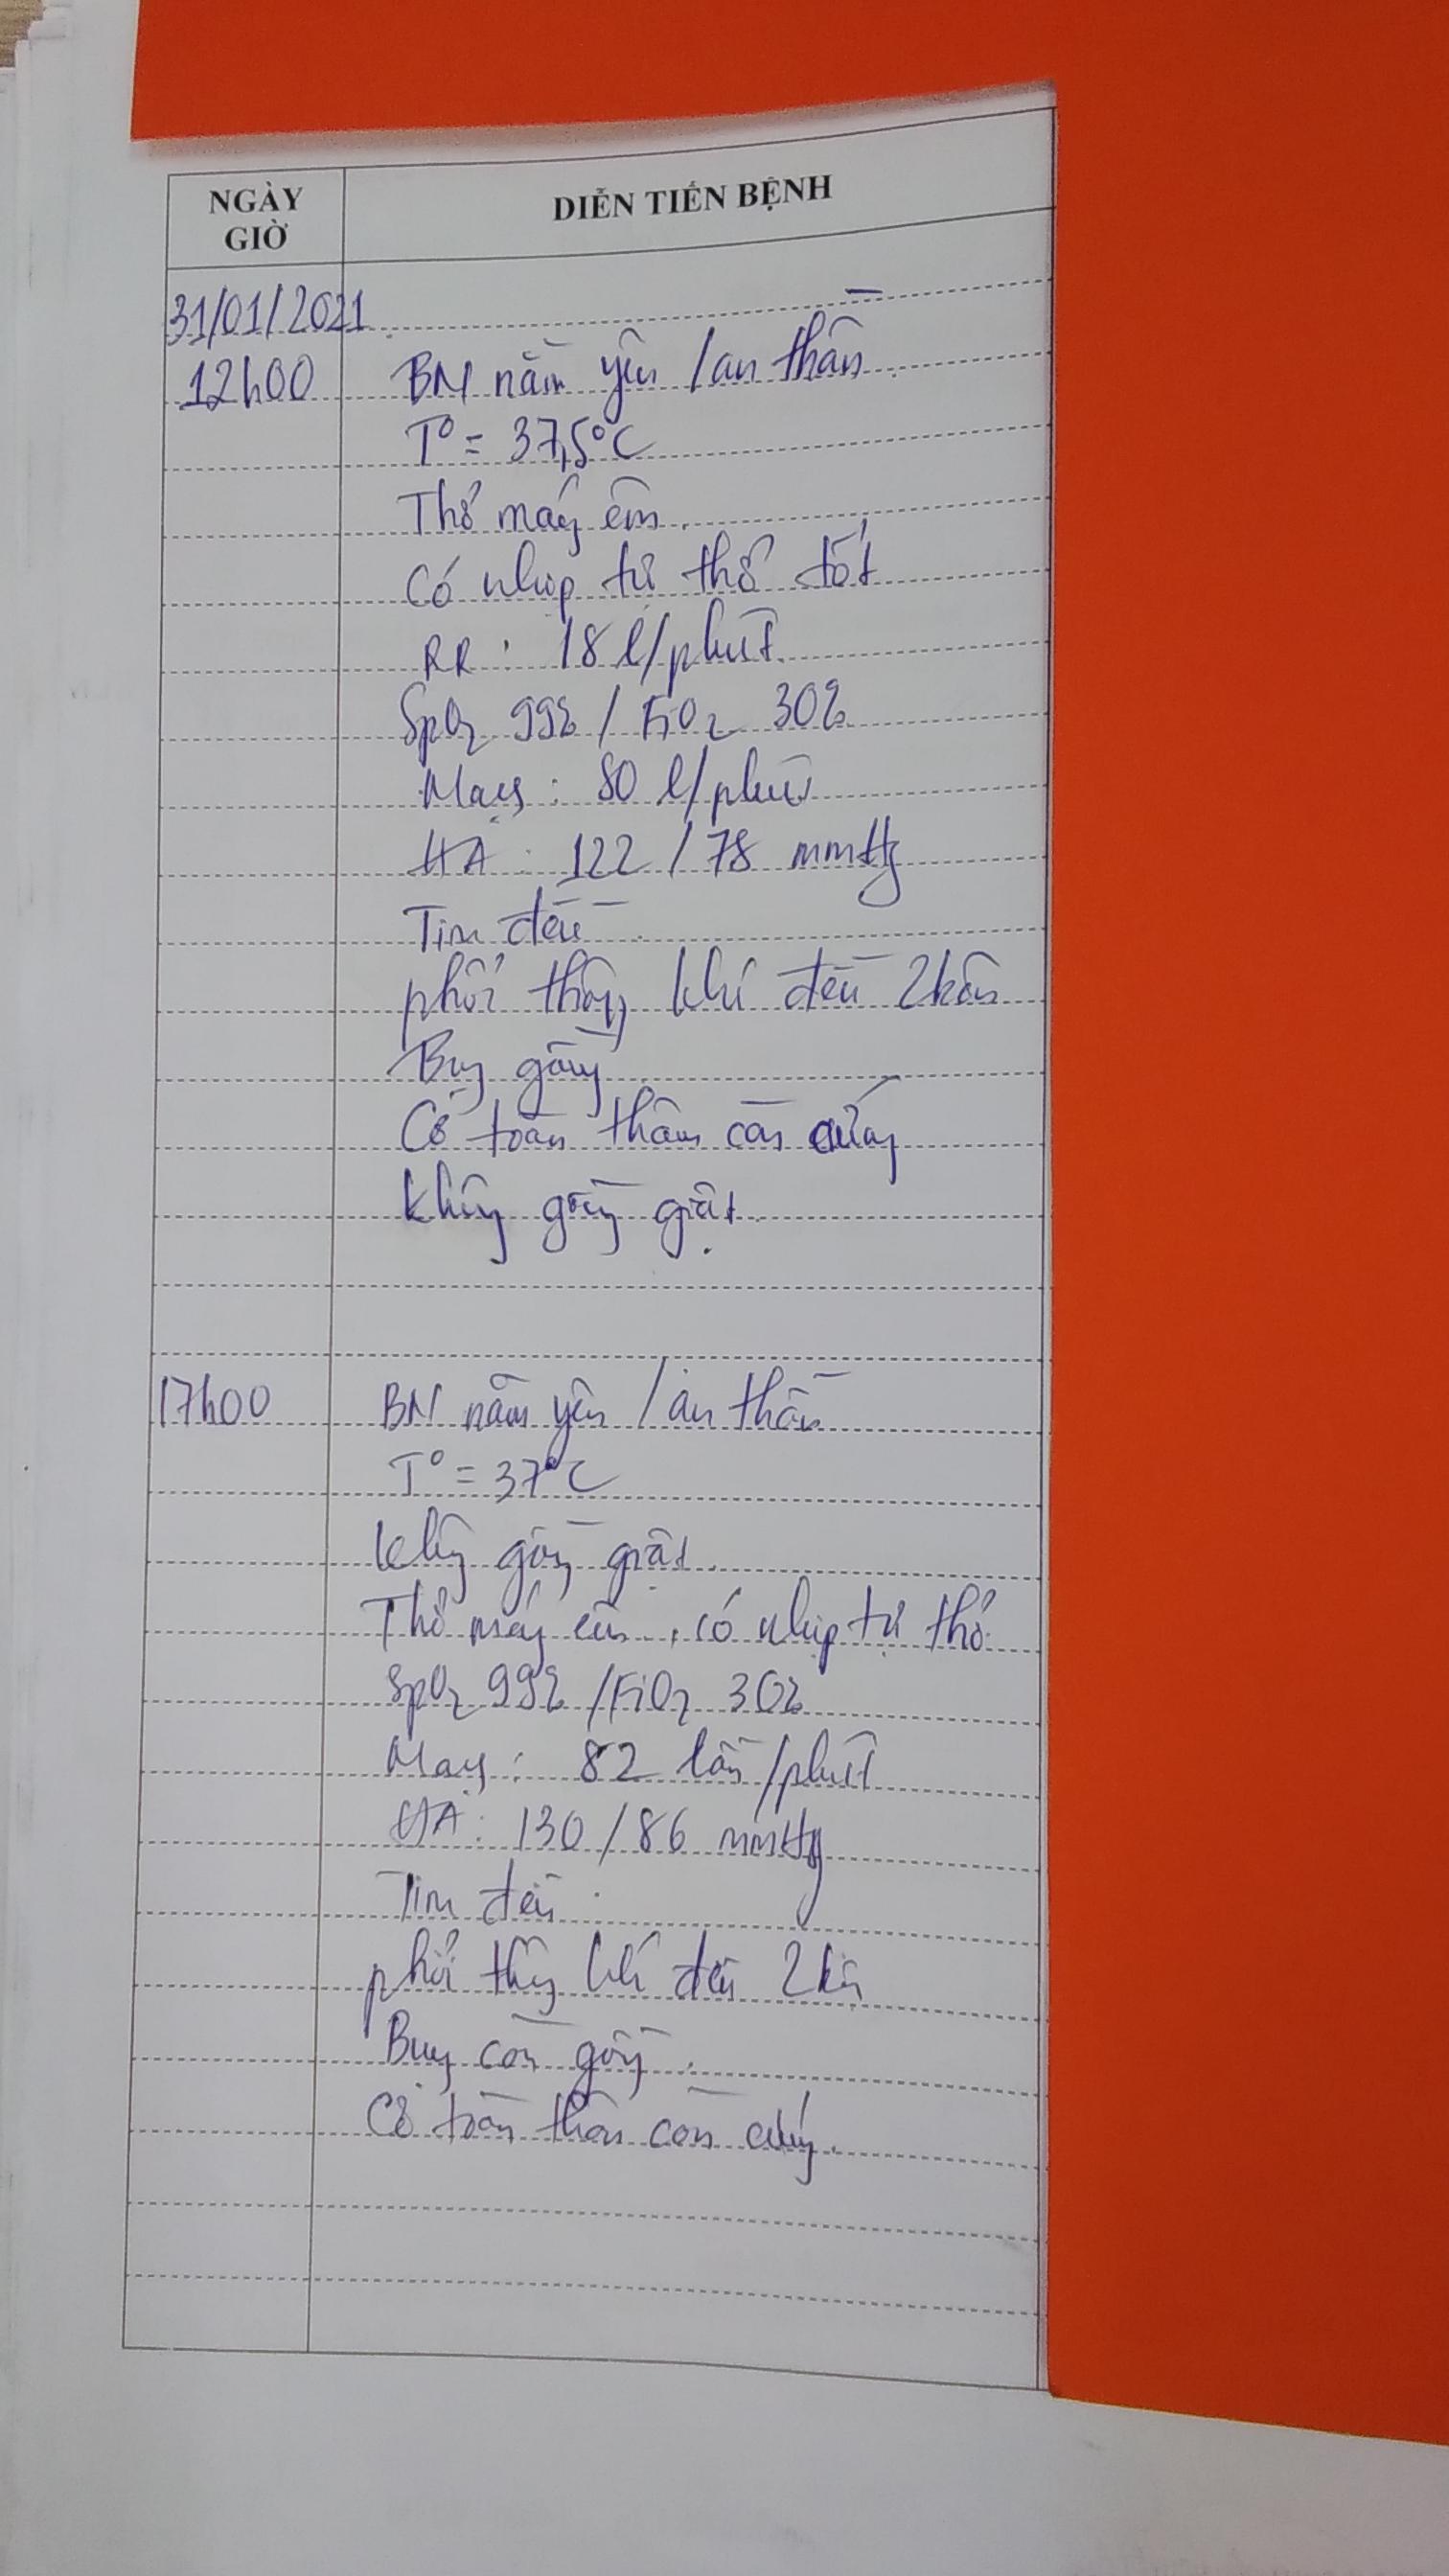 NGÀY GIỜ
DIỄN TIẾN BỆNH
31/01/2021
12h00 BN nằm yên / an thần
T° = 37,5°C
Thở máy êm
Có nhịp tự thở tốt
RR : 18 l/phút
SpO2 99% / FiO2 30%
Mạch : 80 l/phút
HA : 122 / 78 mmHg
Tim đều
phổi thông khí đều 2 bên
Bụng gồng
Cơ toàn thân còn cứng
Không gồng giật
17h00 BN nằm yên / an thần
T° = 37°C
Không gồng giật
Thở máy êm, có nhịp tự thở
SpO2 99% / FiO2 30%
Mạch : 82 lần/phút
HA : 130 / 86 mmHg
Tim đều
phổi thông khí đều 2 bên
Bụng còn gồng
Cơ toàn thân còn cứng.